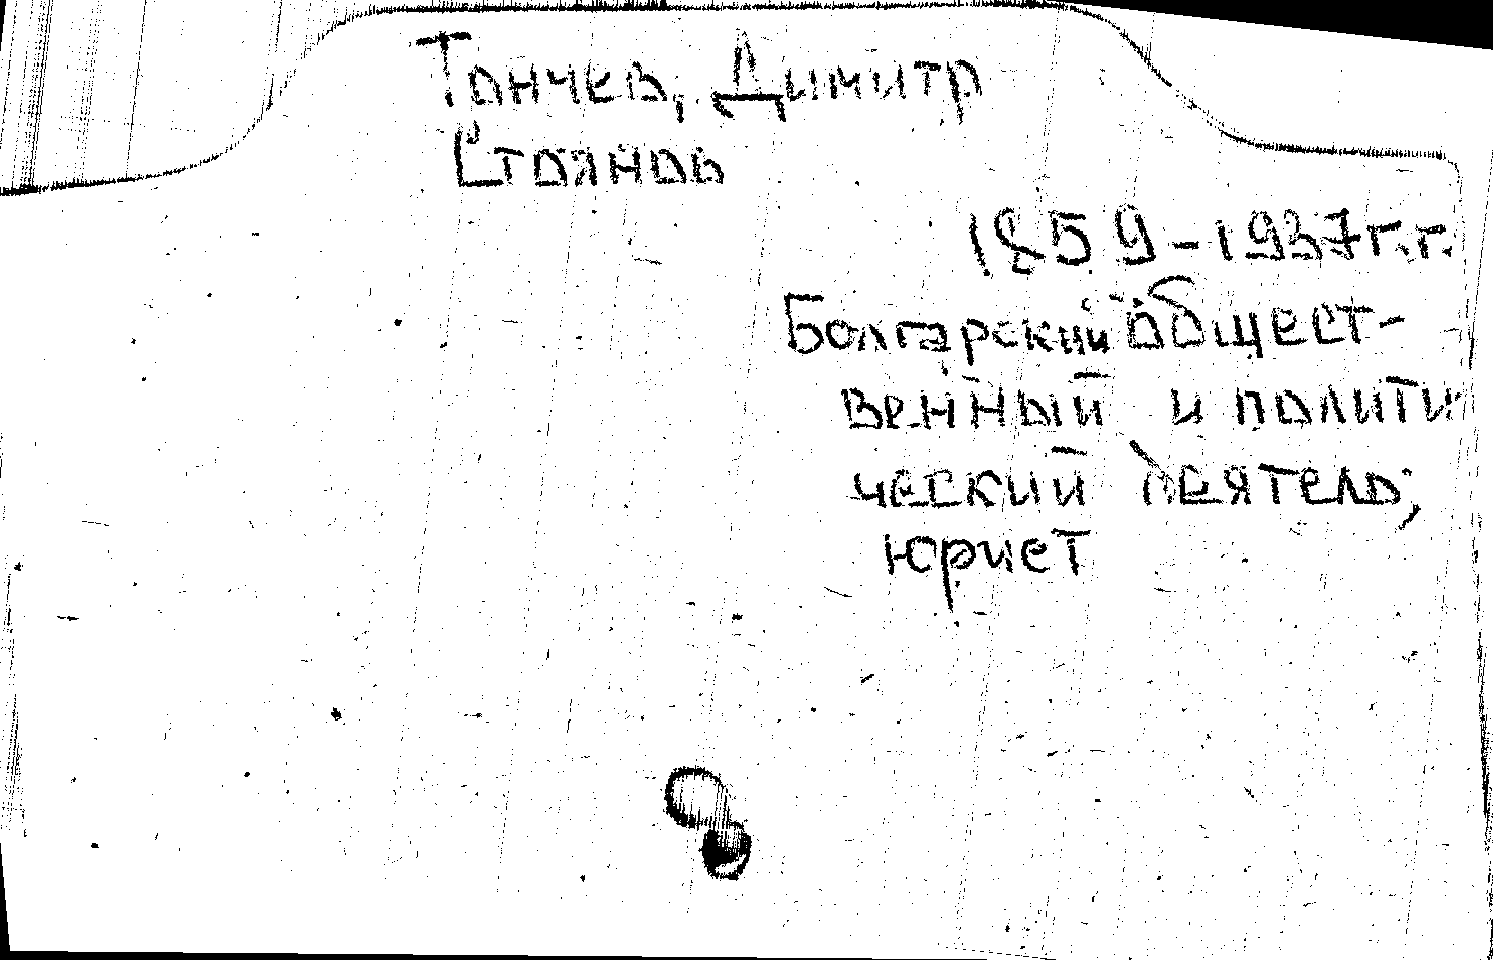 Тончев, Димитр
Стоянов
1859-1937г.г.
Болгарский общест-
венный и полити
ческий деятель,
юрист